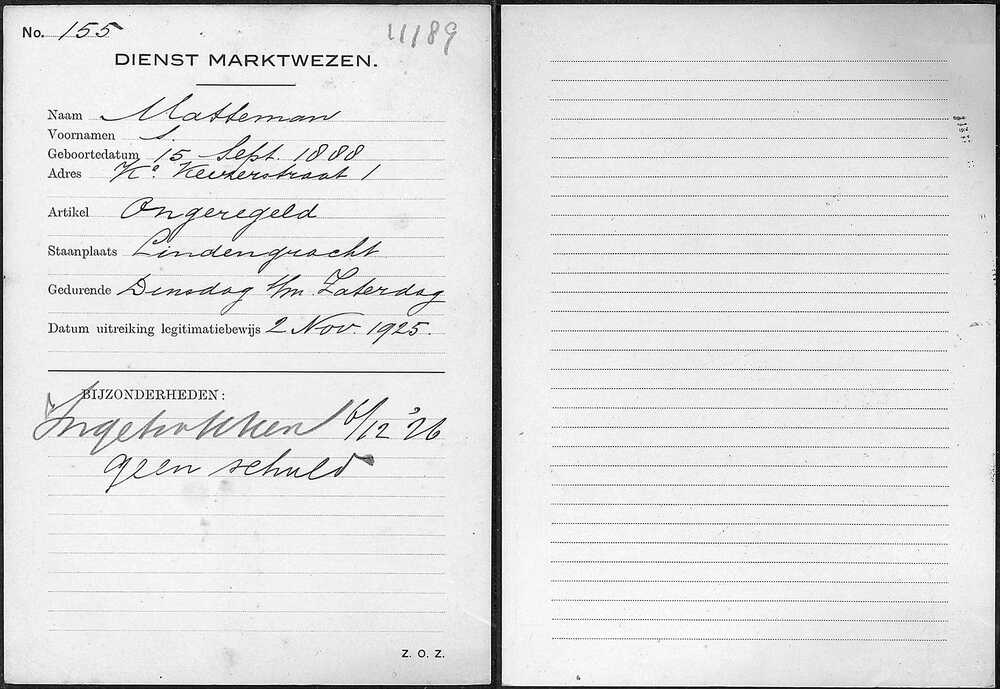 No. 155
11189
DIENST MARKTWEZEN.
Naam Matteman
Voornamen S.
Geboortedatum 15 Sept. 1888
Adres Ke. Keizerstraat 1
Artikel Ongeregeld
Staanplaats Lindengracht
Gedurende Dinsdag t/m. Zaterdag
Datum uitreiking legitimatiebewijs 2 Nov. 1925.
BIJZONDERHEDEN:
Ingetrokken 6/12 '26
geen schuld
Z. O. Z.